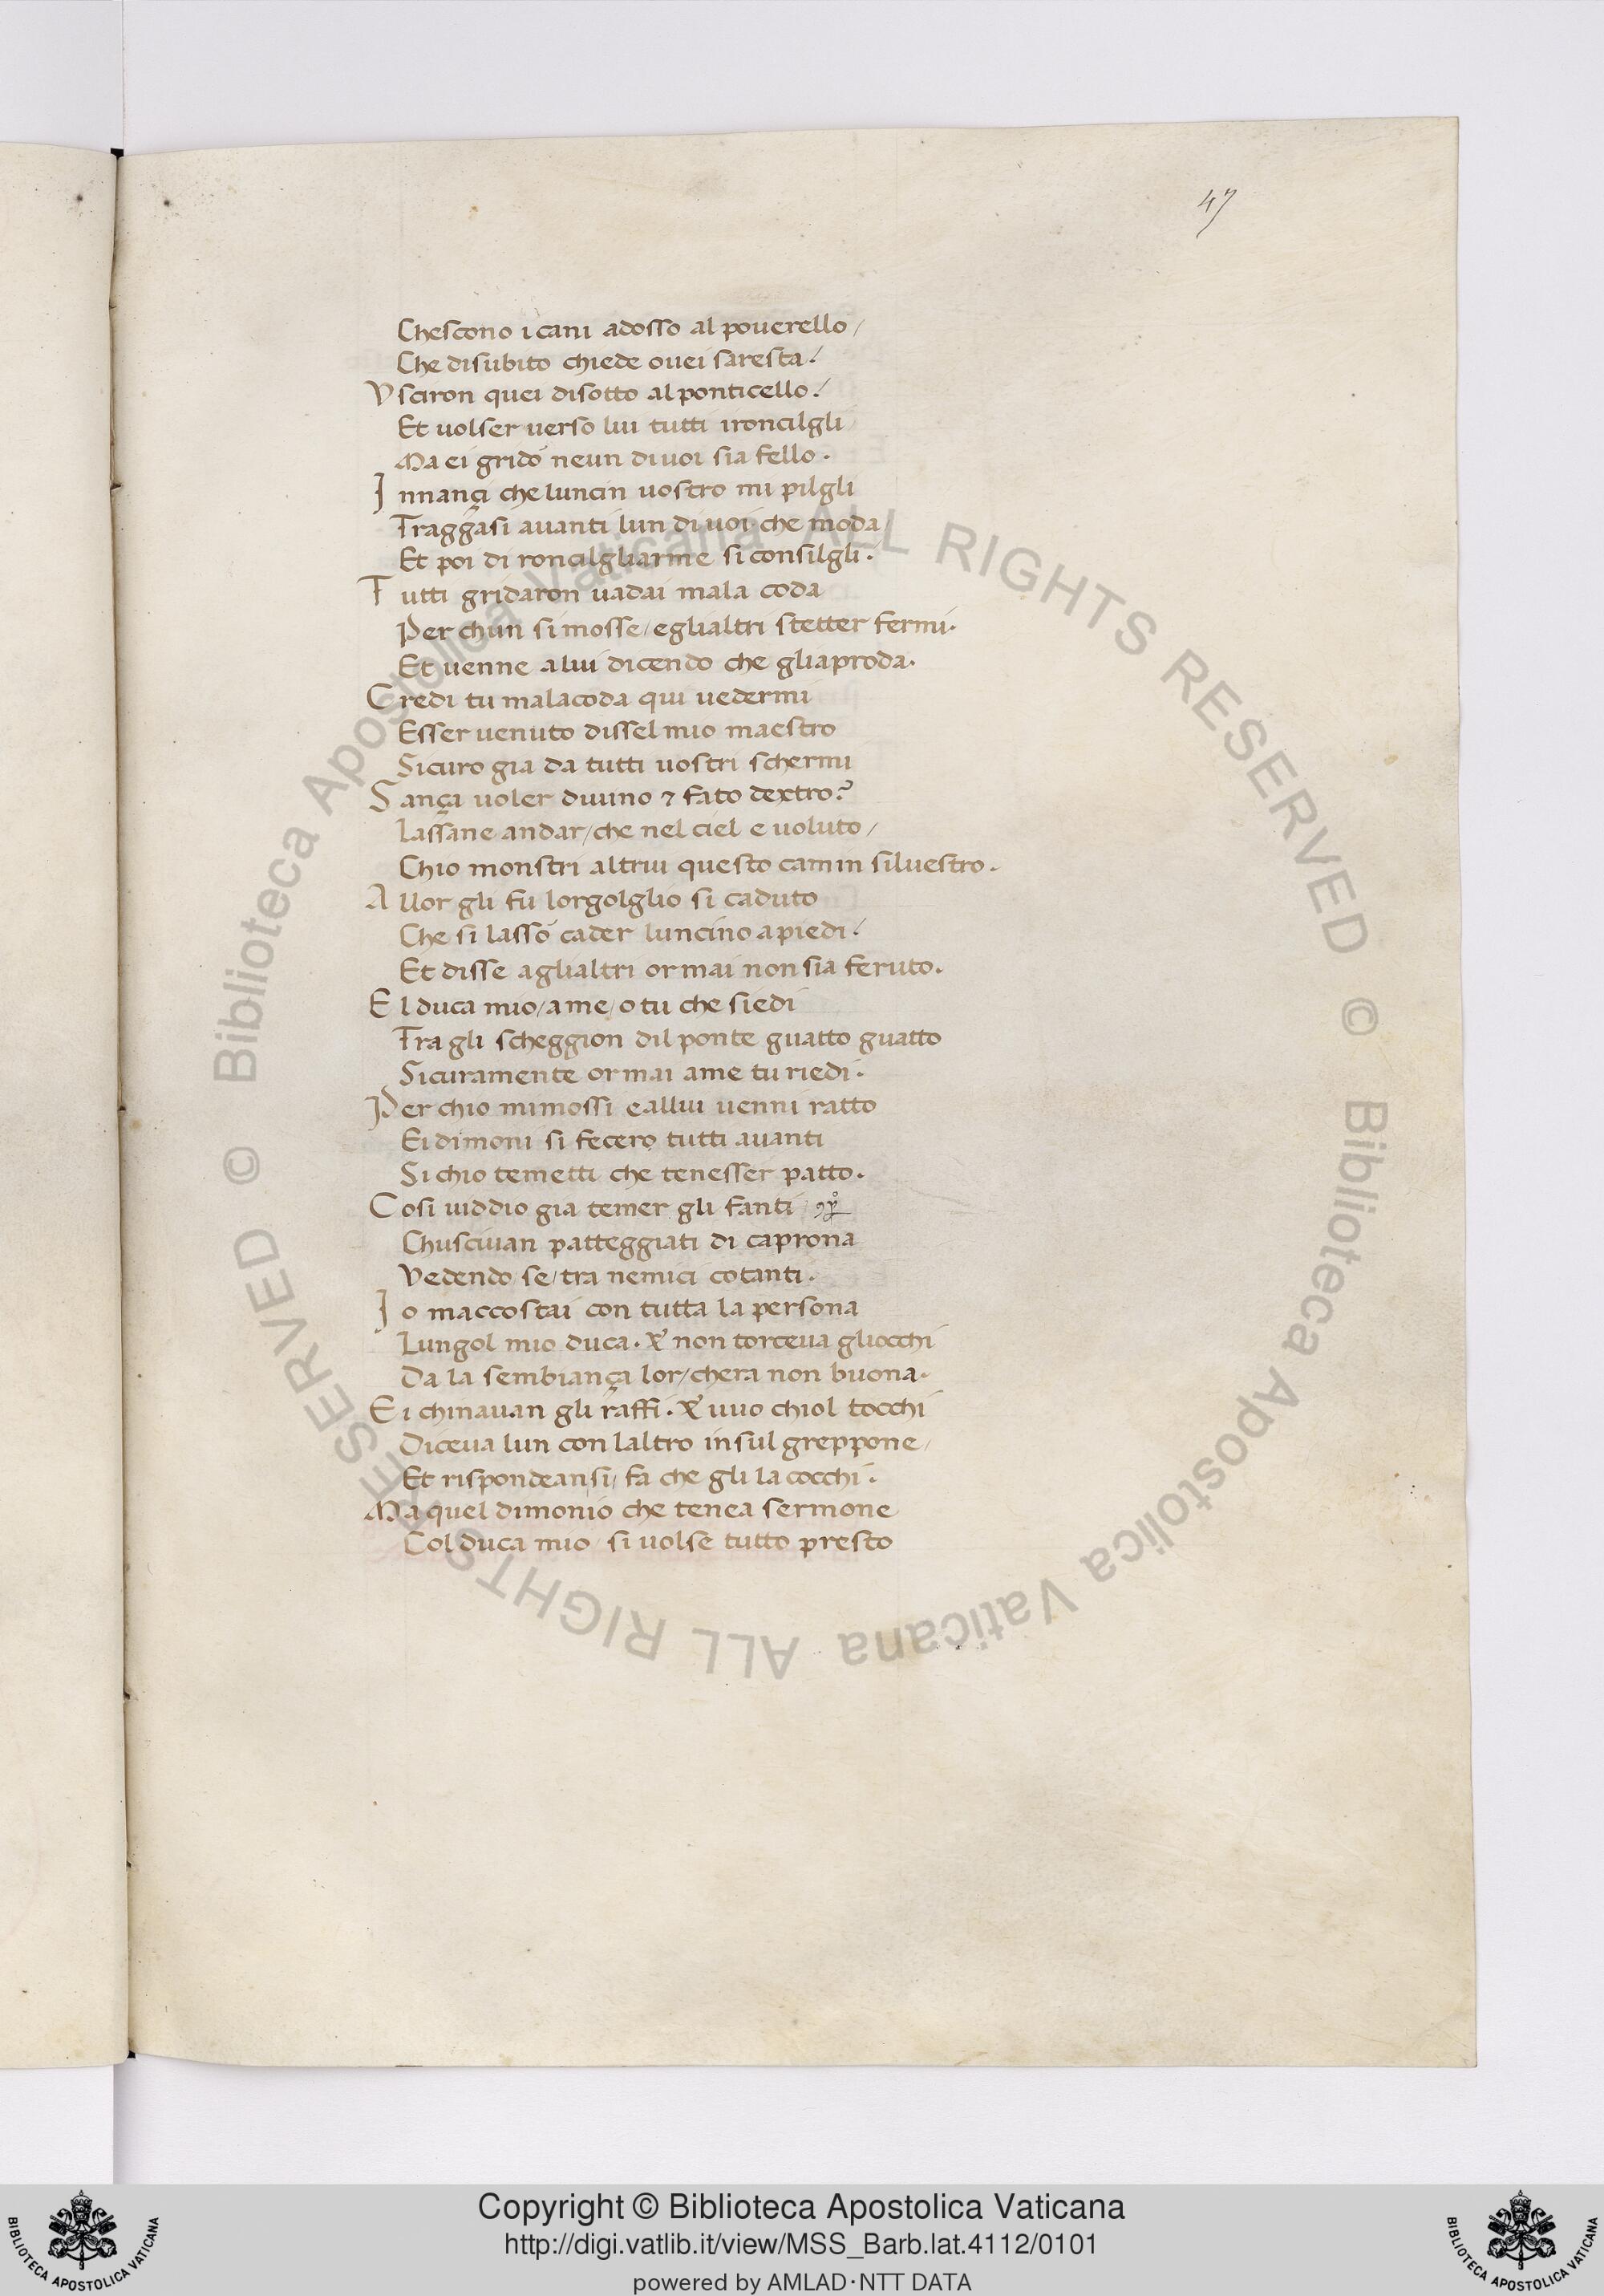 47
Chescono i cani adosso al pouerello/
Che disubito chiede ouei saresta!
Vsciron quei disotto al ponticello!
Et uolser uerso lui tutti ironcilgli/
Ma ei gridó neun di uoi sia fello.
Innançi che luncin uostro mi pilgli
Traggasi auanti lun di uoi che moda
Et poi di roncilgliarme si consilgli.
Tutti gridaron uadai mala coda
Per chun si mosse/eglialtri stetter fermi.
Et uenne a lui dicendo che gliaproda.
Credi tu malacoda qui uedermi
Esser uenuto dissel mio maestro
Sicuro gia da tutti uostri schermi
Sança uoler diuino ⁊ fato dextro?
Lassane andar/che nel ciel e uoluto/
Chio monstri altrui questo camin siluestro.
Allor gli fu lorgolglio si caduto
Che si lassó cader luncino a piedi!
Et disse aglialtri ormai non sia feruto.
El duca mio/a me/o tu che siedi
Tra gli scheggion dil ponte guatto guatto
Sicuramente ormai ame tu riedi.
Per chio mimossi e allui uenni ratto
Ei dimoni si fecero tutti auanti
Si chio temetti che tenesser patto.
Cosi uiddio gia temer gli fanti
Chusciuan patteggiati di caprona
Vedendo se/tra nemici cotanti.
Io maccostai con tutta la persona
Lungol mio duca. & non torceua gliocchi
Da la sembiança lor/chera non buona.
Ei chinauan gli raffi. & uuo chiol tocchi
Diceua lun con laltro in sul greppone/
Et rispondeansi/fa che gli la cocchi.
Ma quel dimonio che tenea sermone
Col duca mio/si uolse tutto presto
© Biblioteca Apostolica Vaticana ALL RIGHTS RESERVED
© Biblioteca Apostolica Vaticana ALL RIGHTS RESERVED
Copyright © Biblioteca Apostolica Vaticana
http://digi.vatlib.it/view/MSS_Barb.lat.4112/0101
powered by AMLAD·NTT DATA
BIBLIOTECA APOSTOLICA VATICANA
BIBLIOTECA APOSTOLICA VATICANA